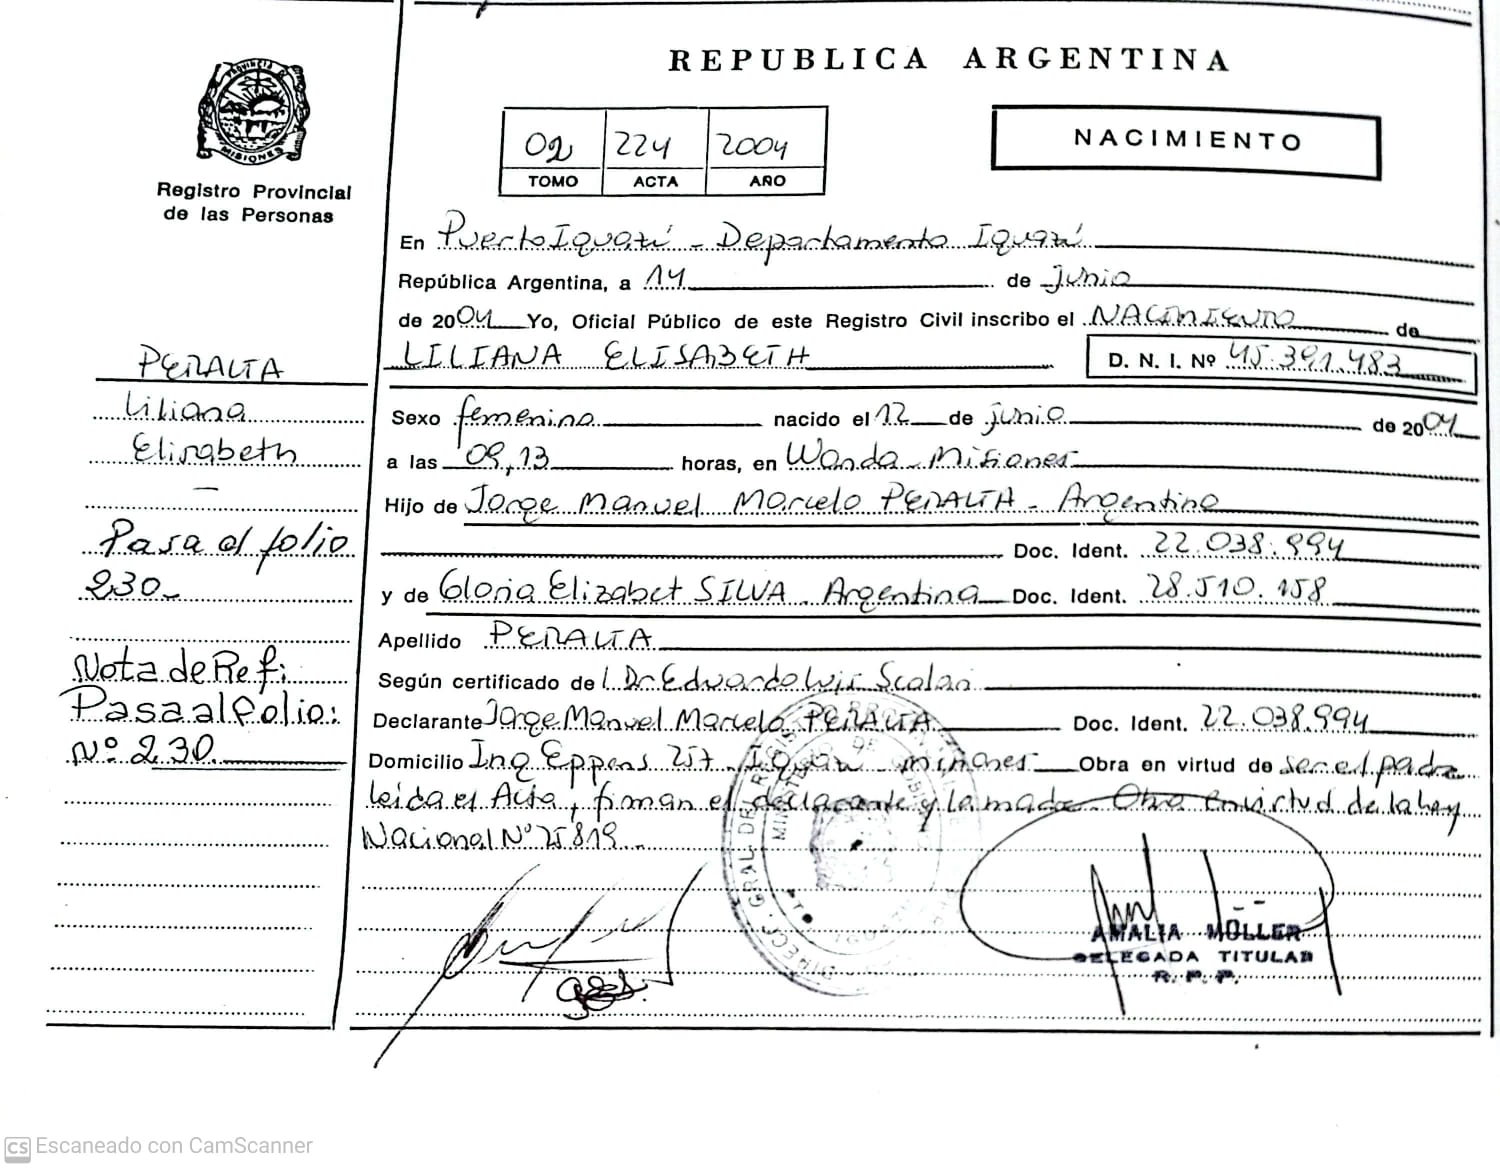 REPUBLICA ARGENTINA
PROVINCIA DE
MISIONES
Registro Provincial
de las Personas
02 224 2004
TOMO ACTA AÑO
NACIMIENTO
En Puerto Iguazú - Departamento Iguazú
República Argentina, a 14 de junio
de 2004 Yo, Oficial Público de este Registro Civil inscribo el NACIMIENTO de
LILIANA ELISABETH D. N. I. Nº 45.391.483
Sexo femenino nacido el 12 de junio de 2004
a las 09,13 horas, en Wanda - Misiones
Hijo de Jorge Manuel Marcelo PERALTA - Argentino
Doc. Ident. 22.038.994
y de Gloria Elizabet SILVA - Argentina Doc. Ident. 28.510.158
Apellido PERALTA
Según certificado de Dr Eduardo Luis Scolari
Declarante Jorge Manuel Marcelo PERALTA Doc. Ident. 22.038.994
Domicilio Ing Eppens 257 - Iguazú - Misiones Obra en virtud de ser el padre
leida el Acta, firman el declarante y la madre - Obra en virtud de la ley
Nacional Nº 25819
PERALTA
Liliana
Elisabeth
—
Pasa al folio
230-
Nota de Ref:
Pasa al folio:
Nº 230.
AMALIA MÖLLER
DELEGADA TITULAR
R. P. P.
CS Escaneado con CamScanner